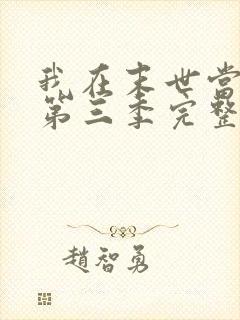 我在末世当
第三季完整
趙智勇